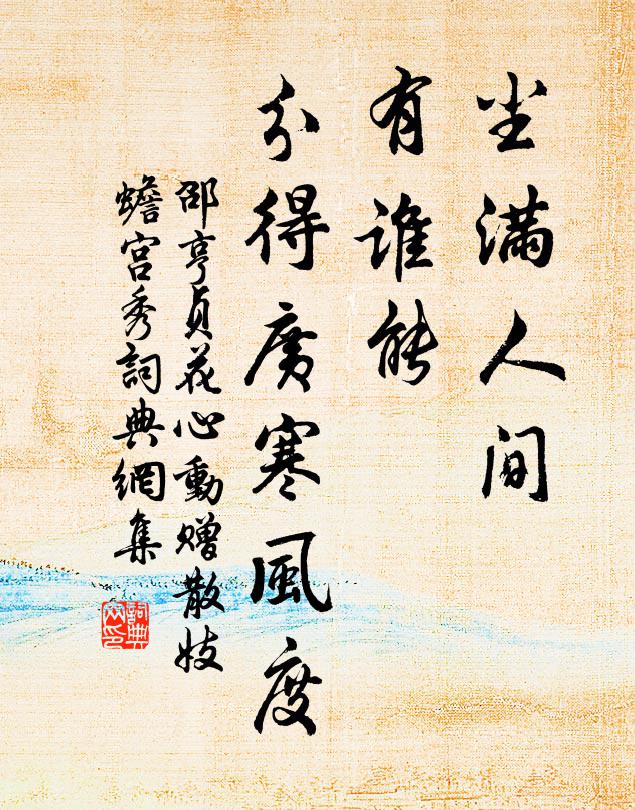 尘满人间
有谁能
分得廣寒風度
邵亨贞花心動赠散妓
蟾宫秀詞典網集
詞典网印